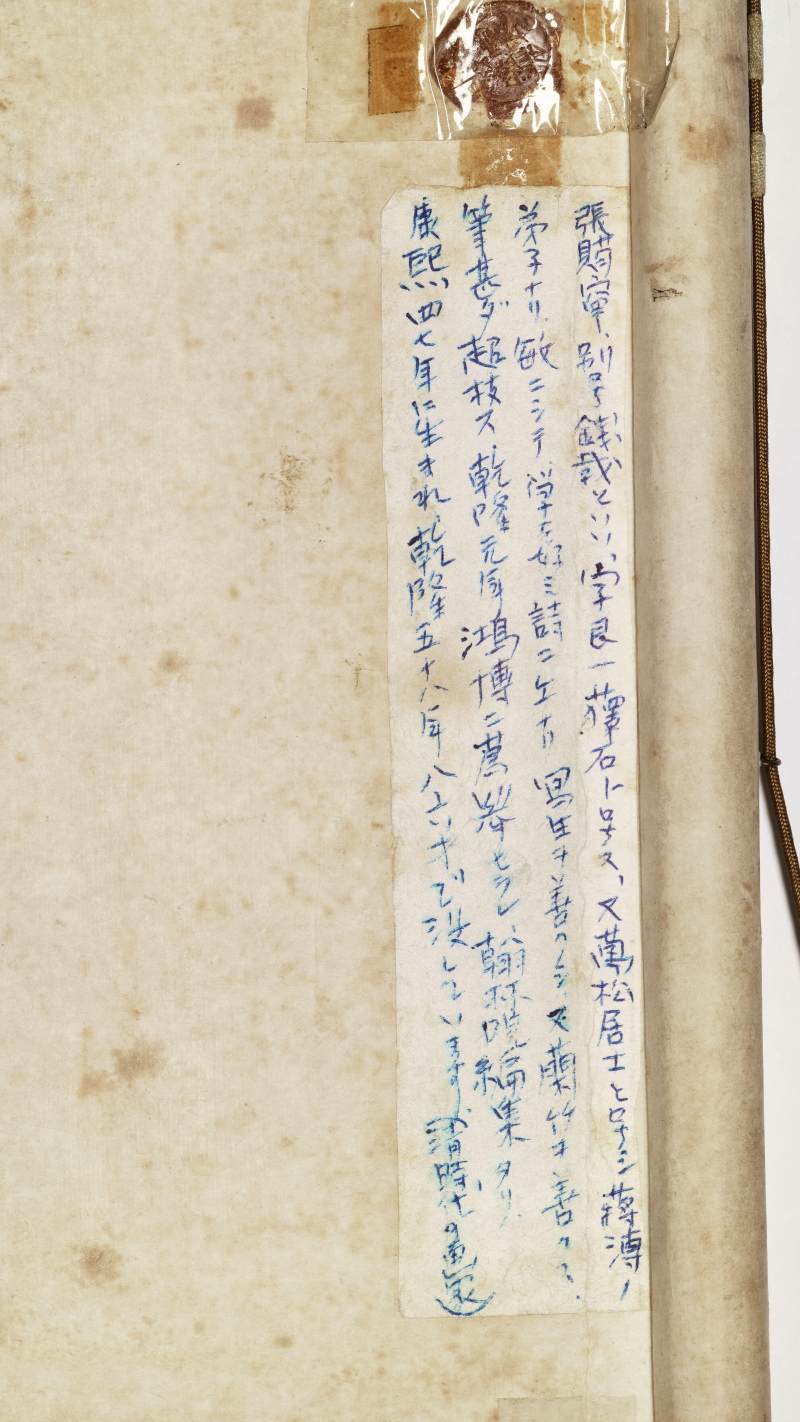 張賜寧、別号錢載といい、字良一蘀石ト号ス、又萬松居士と号シ蒋溥ノ
弟子ナリ、敏ニシテ、学ヲ好ミ詩ニ工ナリ 写生ヲ善クシ、又蘭竹ヲ善クス、
筆甚ダ超枝ス、乾隆元年鴻博ニ薦挙セラレ、翰林院編集タリ、
康熙四七年に生まれ、乾隆五十八年八六才で没しています(清時代の画家)